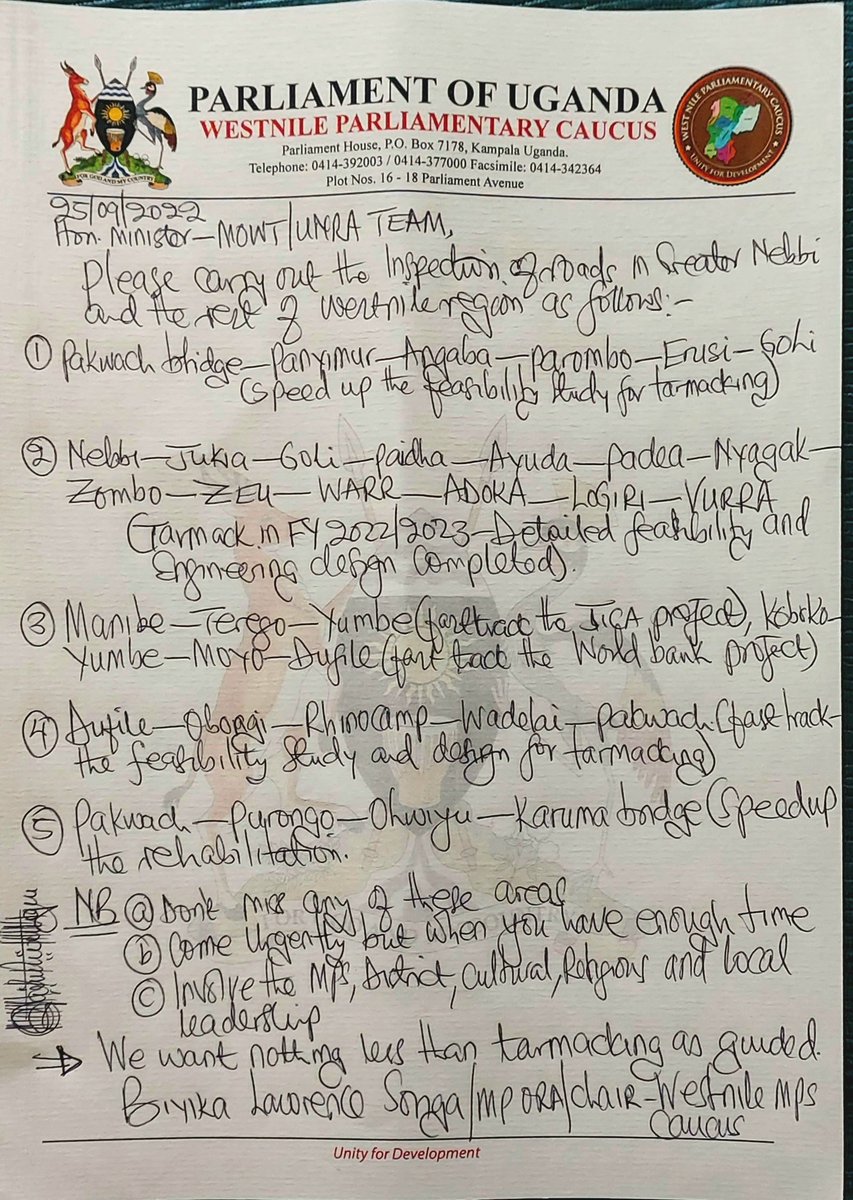 PARLIAMENT OF UGANDA
WESTNILE PARLIAMENTARY CAUCUS
Parliament House, P.O. Box 7178, Kampala Uganda.
Telephone: 0414-392003 / 0414-377000 Facsimile: 0414-342364
Plot Nos. 16 - 18 Parliament Avenue
FOR GOD AND MY COUNTRY
WEST NILE PARLIAMENTARY CAUCUS
UNITY FOR DEVELOPMENT
25/09/2022
Hon. Minister-MOWT/UNRA TEAM,
Please carry out the Inspection of roads in Greater Nebbi
and the rest of westnile region as follows:-
① Pakwach bridge-Panyimur-Angaba-Parombo-Erusi-Goli
(speed up the feasibility study for tarmacking)
② Nebbi-Jukia-Goli-Paidha-Ayuda-Padea-Nyagak-
Zombo-ZEU-WARR-ADOKA-LOGIRI-VURRA
(Tarmack in FY 2022/2023-Detailed feasibility and
Engineering design completed).
③ Manibe-Terego-Yumbe (fast track the JICA project), Koboko-
Yumbe-Moyo-Dufile (fast track the World bank project)
④ Dufile-Obongi-Rhinocamp-Wadelai-Pakwach (fast track-
the feasibility study and design for tarmacking)
⑤ Pakwach-Purongo-Olwiyu-Karuma bridge (Speedup
the rehabilitation.
NB ⓐ Don't miss any of these areas
ⓑ Come Urgently but when you have enough time
ⓒ Involve the MPs, District, Cultural, Religious and Local
leadership
⇒ We want nothing less than tarmacking as guided.
Biyika Lawrence Songa/MP ORA/Chair-Westnile MPs
Caucus
Unity for Development